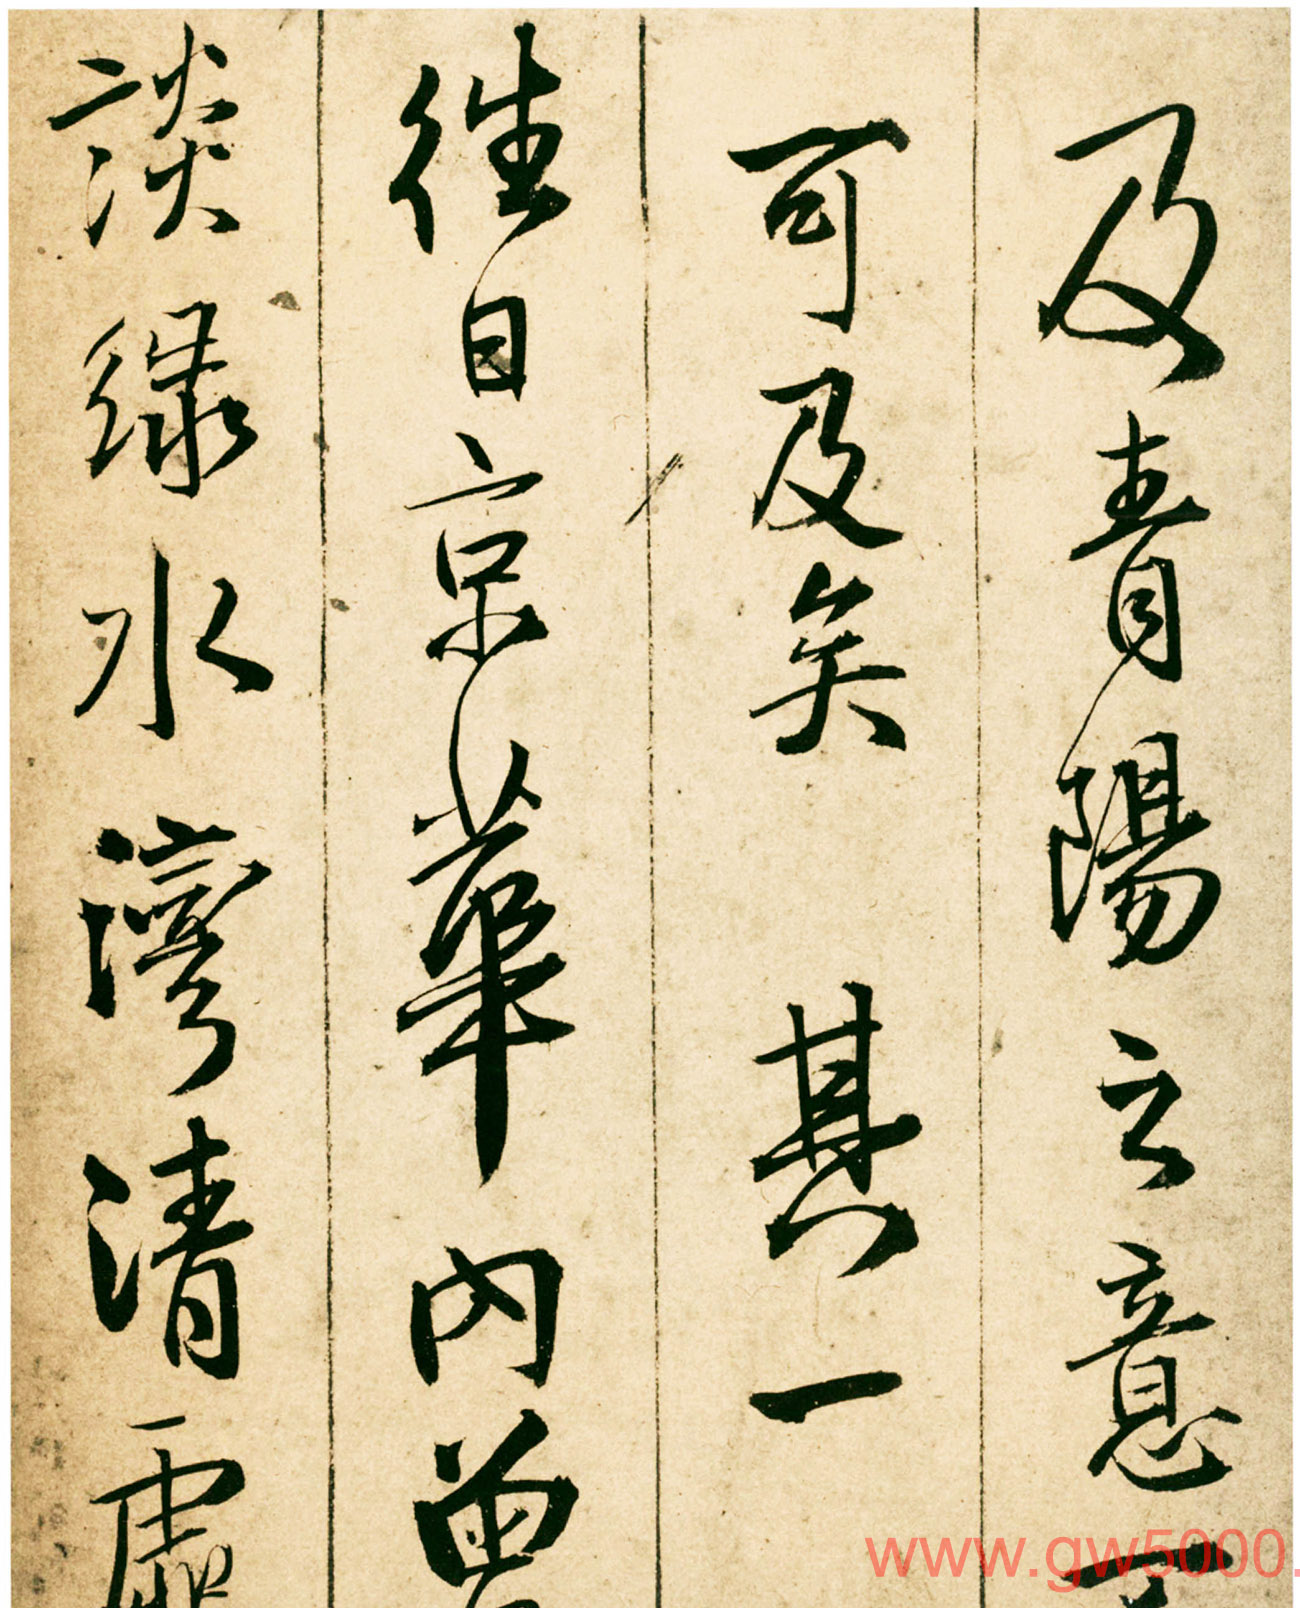 及青陽之意不
可及矣 其一
往日京華內曾
談綠水灣清虛
www.gw5000.